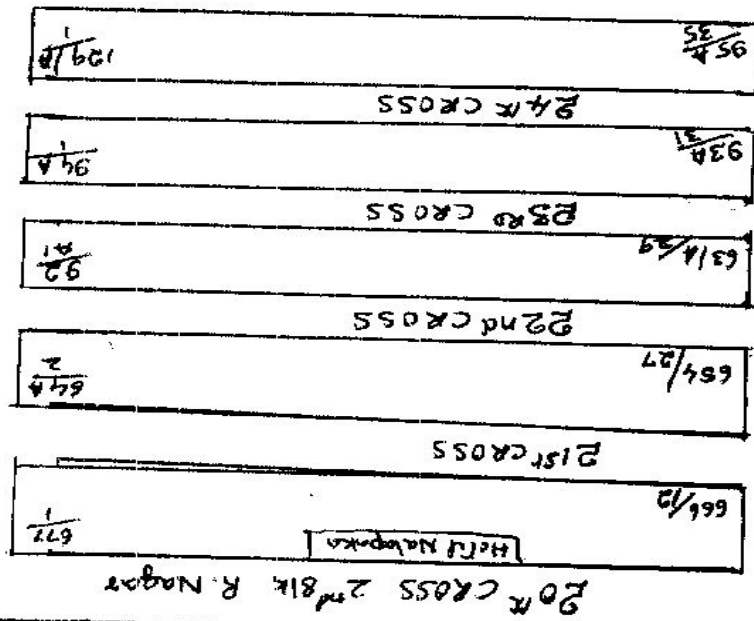 20th CROSS 2nd Blk R. Nagar
Hotel Nalapaka
666/12 677/1
21st CROSS
654/27 64A/2
22nd CROSS
63/A/29 92/A1
23RD CROSS
93A/31 94A/1
24th CROSS
95A/35 129/A/1